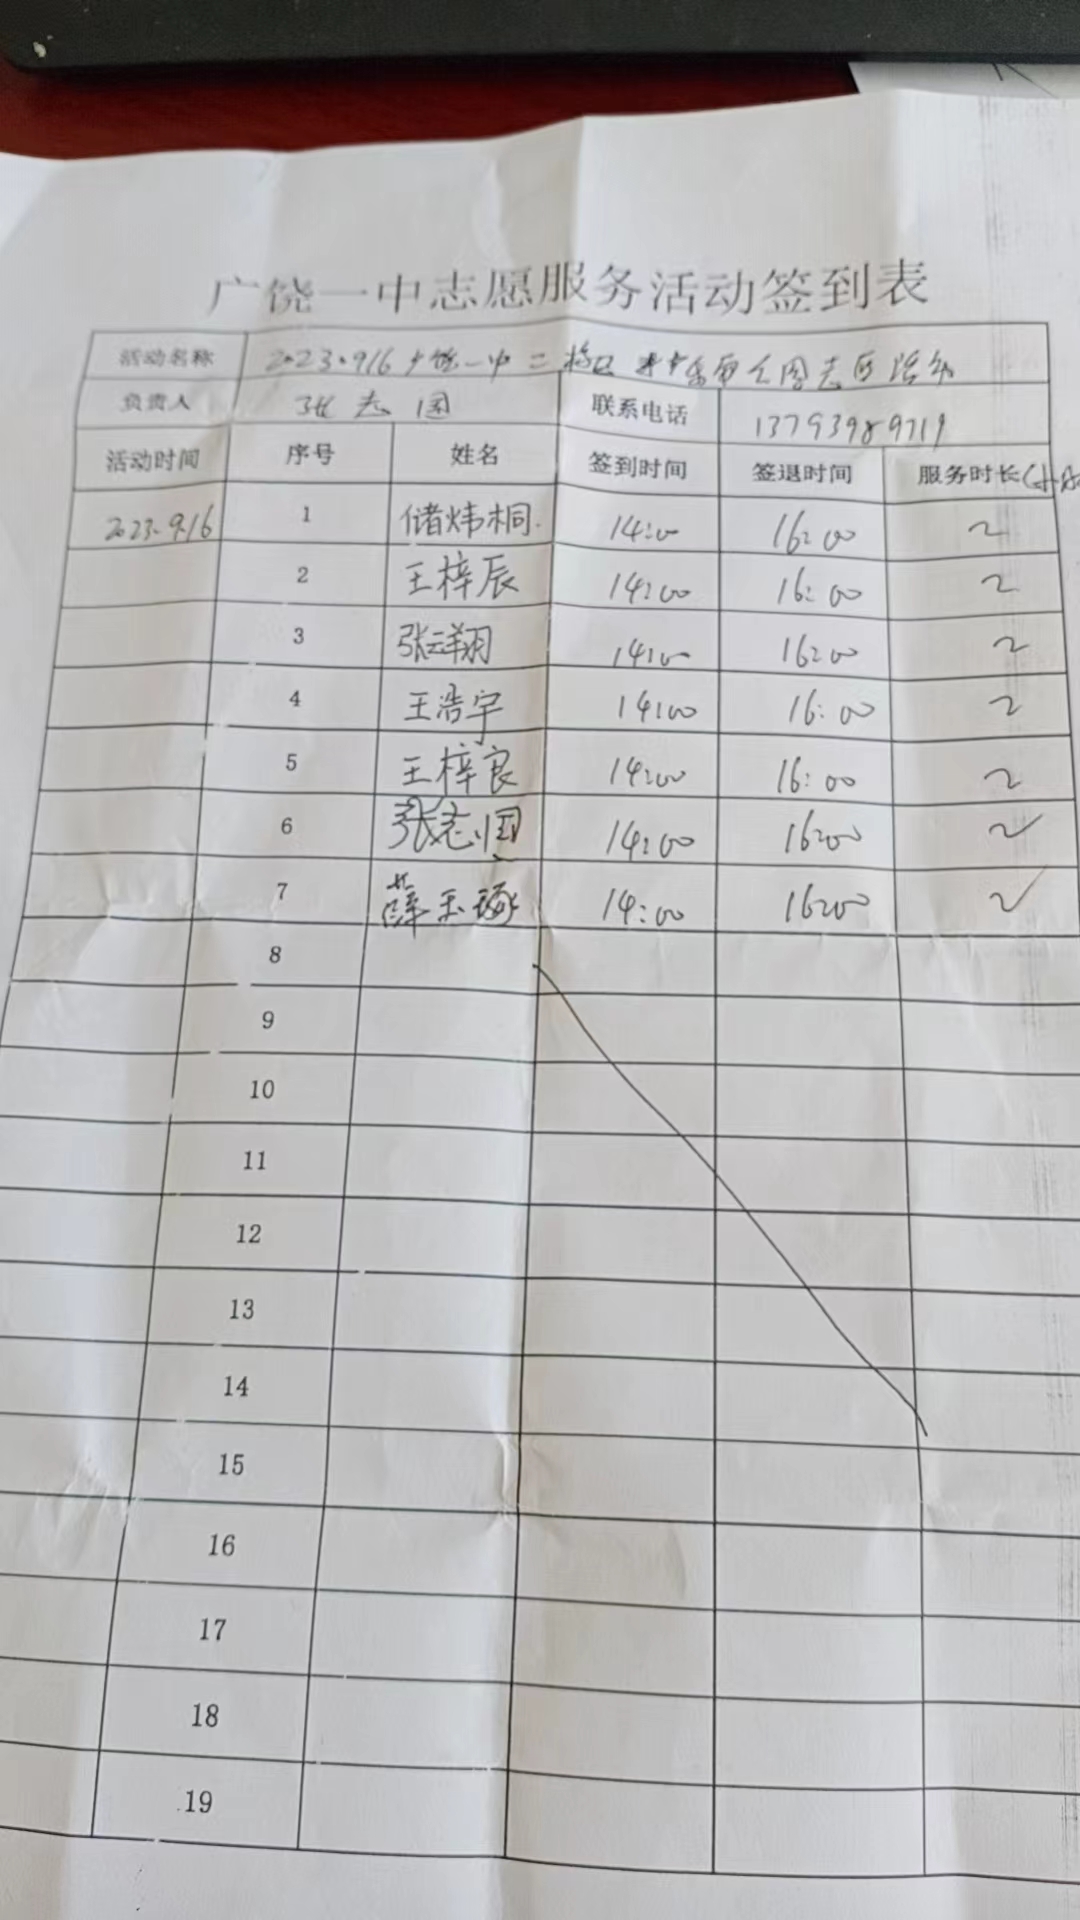 广饶一中志愿服务活动签到表
活动名称 2023.9.16 广饶一中二校区
负责人 张志国 联系电话 13793989719
活动时间 序号 姓名 签到时间 签退时间 服务时长(小时
2023.9.16 1 储炜桐. 14:00 16:00 2
2 王梓辰 14:00 16:00 2
3 张云翔 14:00 16:00 2
4 王浩宇 14:00 16:00 2
5 王梓良 14:00 16:00 2
6 张志国 14:00 16:00 2
7 薛玉琢 14:00 16:00 2
8
9
10
11
12
13
14
15
16
17
18
19